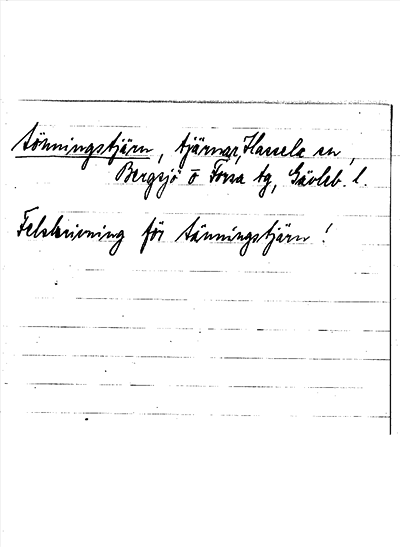 Tönningstjärn, tjärnar, Hassela sn,
Bergsjö o Forsa tg, Gävleb. l.
Felskrivning för Tänningstjärn!